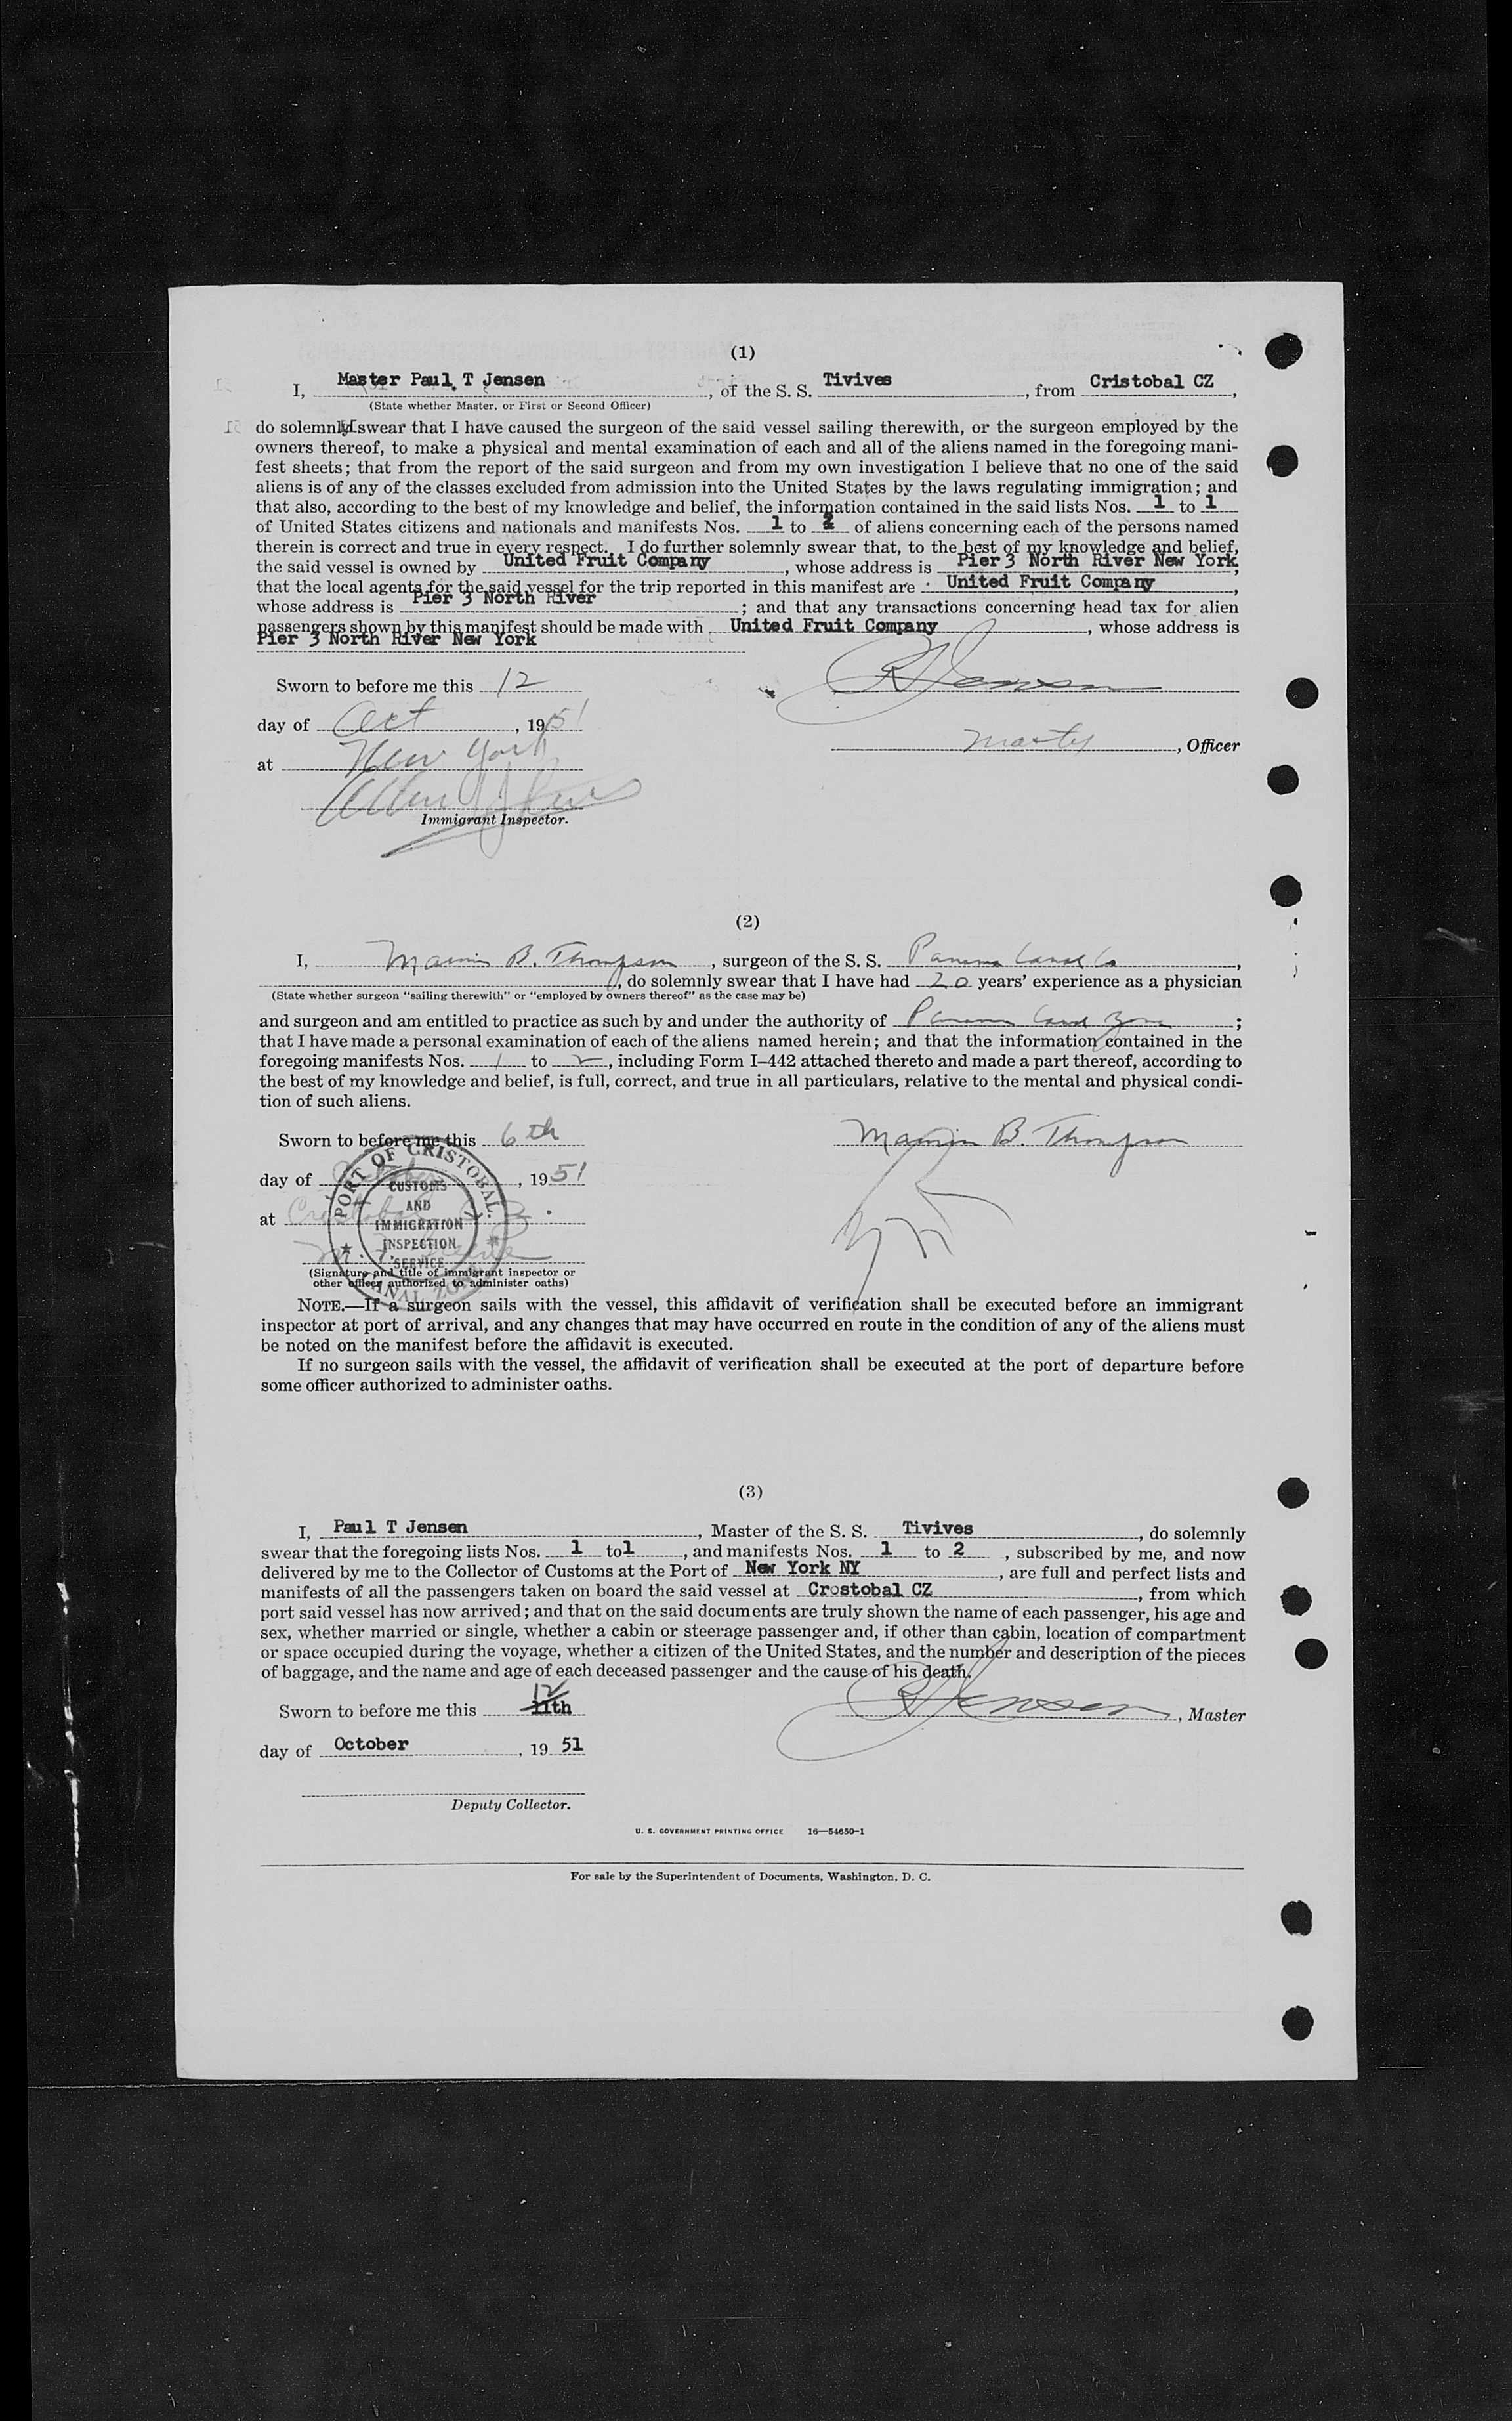 (1)
I, Master Paul T Jensen, of the S. S. Tivives, from Cristobal CZ,
(State whether Master, or First or Second Officer)
do solemnly swear that I have caused the surgeon of the said vessel sailing therewith, or the surgeon employed by the
owners thereof, to make a physical and mental examination of each and all of the aliens named in the foregoing mani-
fest sheets; that from the report of the said surgeon and from my own investigation I believe that no one of the said
aliens is of any of the classes excluded from admission into the United States by the laws regulating immigration; and
that also, according to the best of my knowledge and belief, the information contained in the said lists Nos. 1 to 1
of United States citizens and nationals and manifests Nos. 1 to 2 of aliens concerning each of the persons named
therein is correct and true in every respect. I do further solemnly swear that, to the best of my knowledge and belief,
the said vessel is owned by United Fruit Company, whose address is Pier 3 North River New York,
that the local agents for the said vessel for the trip reported in this manifest are United Fruit Company,
whose address is Pier 3 North River; and that any transactions concerning head tax for alien
passengers shown by this manifest should be made with United Fruit Company, whose address is
Pier 3 North River New York
Sworn to before me this 12
day of Oct, 1951
at New York
, Officer
Immigrant Inspector.
(2)
I, B. Thompson, surgeon of the S. S. Panama Canal Co,
, do solemnly swear that I have had 20 years' experience as a physician
(State whether surgeon "sailing therewith" or "employed by owners thereof" as the case may be)
and surgeon and am entitled to practice as such by and under the authority of Panama Canal Zone;
that I have made a personal examination of each of the aliens named herein; and that the information contained in the
foregoing manifests Nos. 1 to 2, including Form I-442 attached thereto and made a part thereof, according to
the best of my knowledge and belief, is full, correct, and true in all particulars, relative to the mental and physical condi-
tion of such aliens.
Sworn to before me this 6th
B. Thompson
day of October, 1951
at Cristobal CZ.
PORT OF CRISTOBAL.
CUSTOMS
AND
IMMIGRATION
INSPECTION
SERVICE
CANAL ZONE
(Signature and title of immigrant inspector or
other officer authorized to administer oaths)
NOTE.—If a surgeon sails with the vessel, this affidavit of verification shall be executed before an immigrant
inspector at port of arrival, and any changes that may have occurred en route in the condition of any of the aliens must
be noted on the manifest before the affidavit is executed.
If no surgeon sails with the vessel, the affidavit of verification shall be executed at the port of departure before
some officer authorized to administer oaths.
(3)
I, Paul T Jensen, Master of the S. S. Tivives, do solemnly
swear that the foregoing lists Nos. 1 to 1, and manifests Nos. 1 to 2, subscribed by me, and now
delivered by me to the Collector of Customs at the Port of New York NY, are full and perfect lists and
manifests of all the passengers taken on board the said vessel at Crostobal CZ, from which
port said vessel has now arrived; and that on the said documents are truly shown the name of each passenger, his age and
sex, whether married or single, whether a cabin or steerage passenger and, if other than cabin, location of compartment
or space occupied during the voyage, whether a citizen of the United States, and the number and description of the pieces
of baggage, and the name and age of each deceased passenger and the cause of his death.
12
Sworn to before me this 11th
Jensen, Master
day of October, 1951
Deputy Collector.
U. S. GOVERNMENT PRINTING OFFICE 16—54650-1
For sale by the Superintendent of Documents, Washington, D. C.